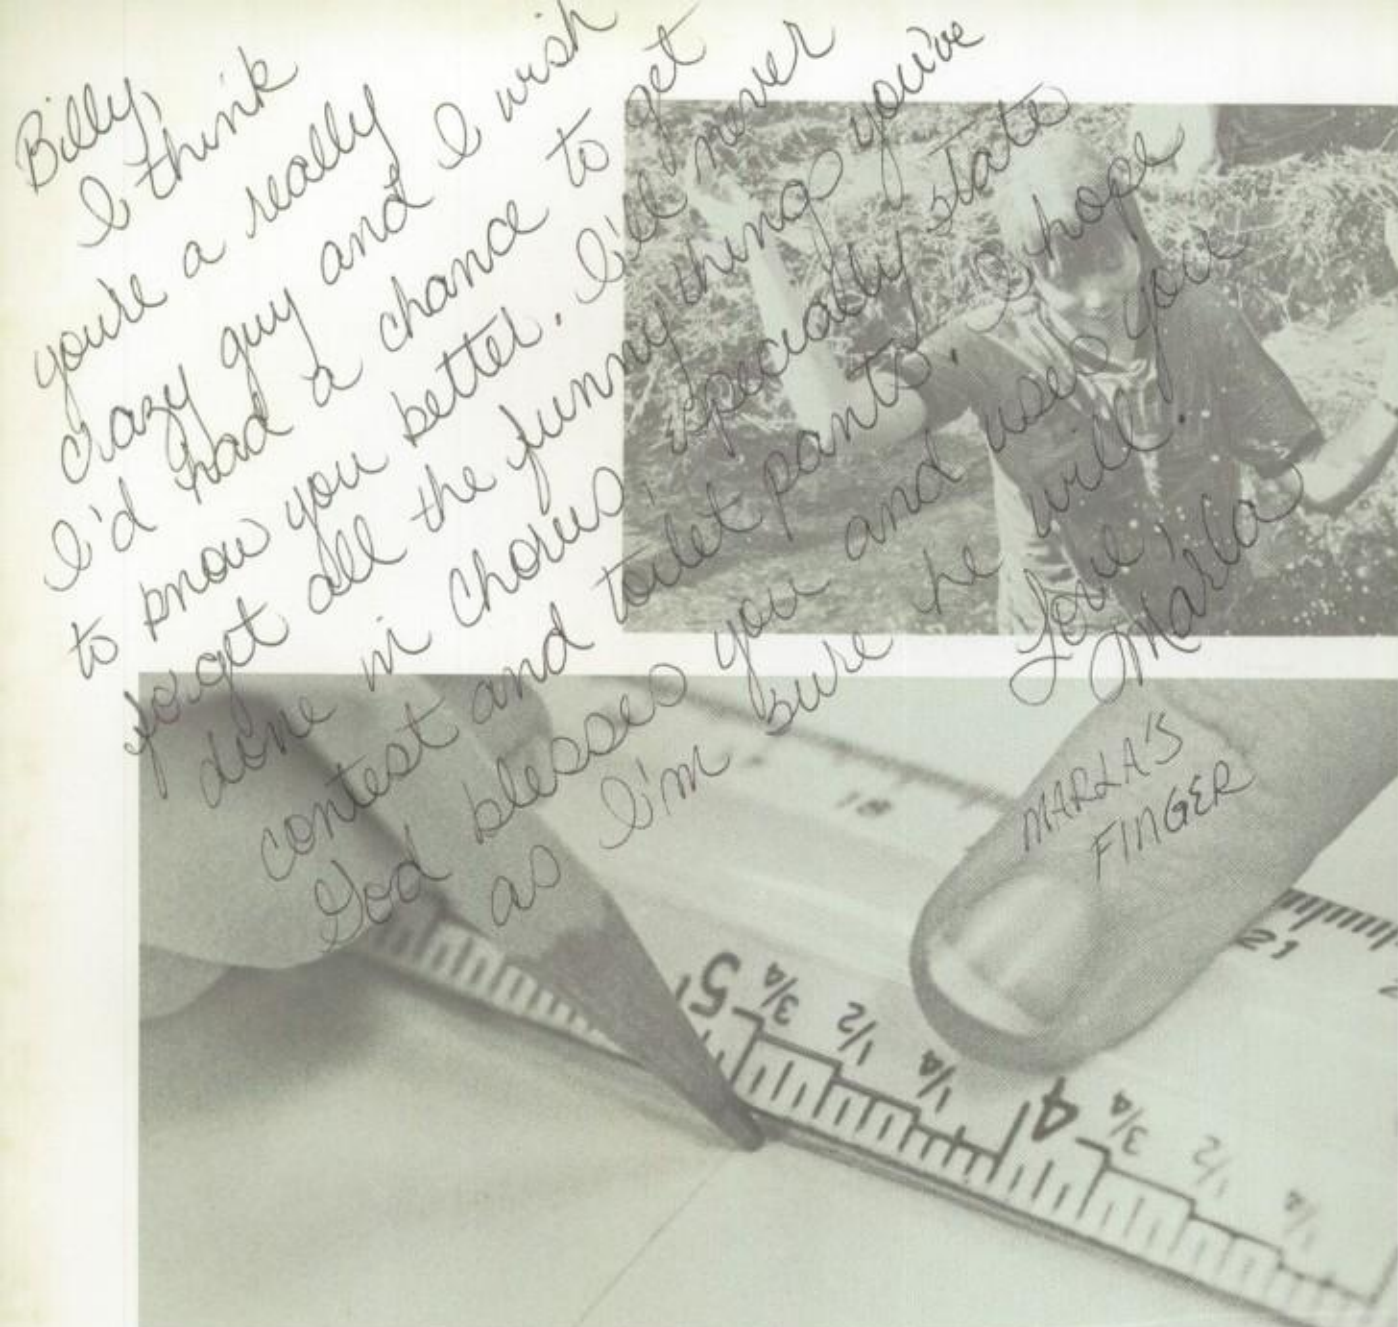 Billy,
I think
you're a really
crazy guy and I wish
I'd had a chance to get
to know you better. I'll never
forget all the funny thing you've
done in chorus, specially state
contest and toilet pants. I hope
God blesses you and uses you
as I'm sure he will.
Love
Marla
MARLA'S
FINGER
5 3/4 1/2 1/4 4 3/4 1/2 1/4
12